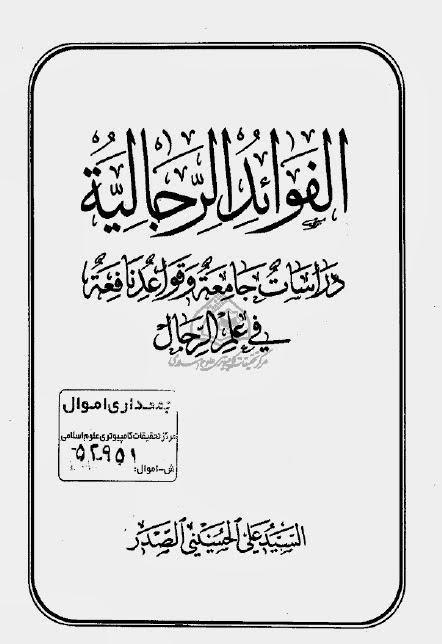 الفَوَائِدُ الرِّجَالِيَّةُ
دِرَاسَاتٌ جَامِعَةٌ وَقَوَاعِدُ نَافِعَةٌ
فِي عِلْمِ الرِّجَالِ
مرکز تحقیقات کامپیوتری علوم اسلامی
جمعداری اموال
مرکز تحقیقات کامپیوتری علوم اسلامی
ش-اموال: ۵۲۹۵۱
السَّيِّدُ عَلِيٌّ الحُسَيْنِيُّ الصَّدْر